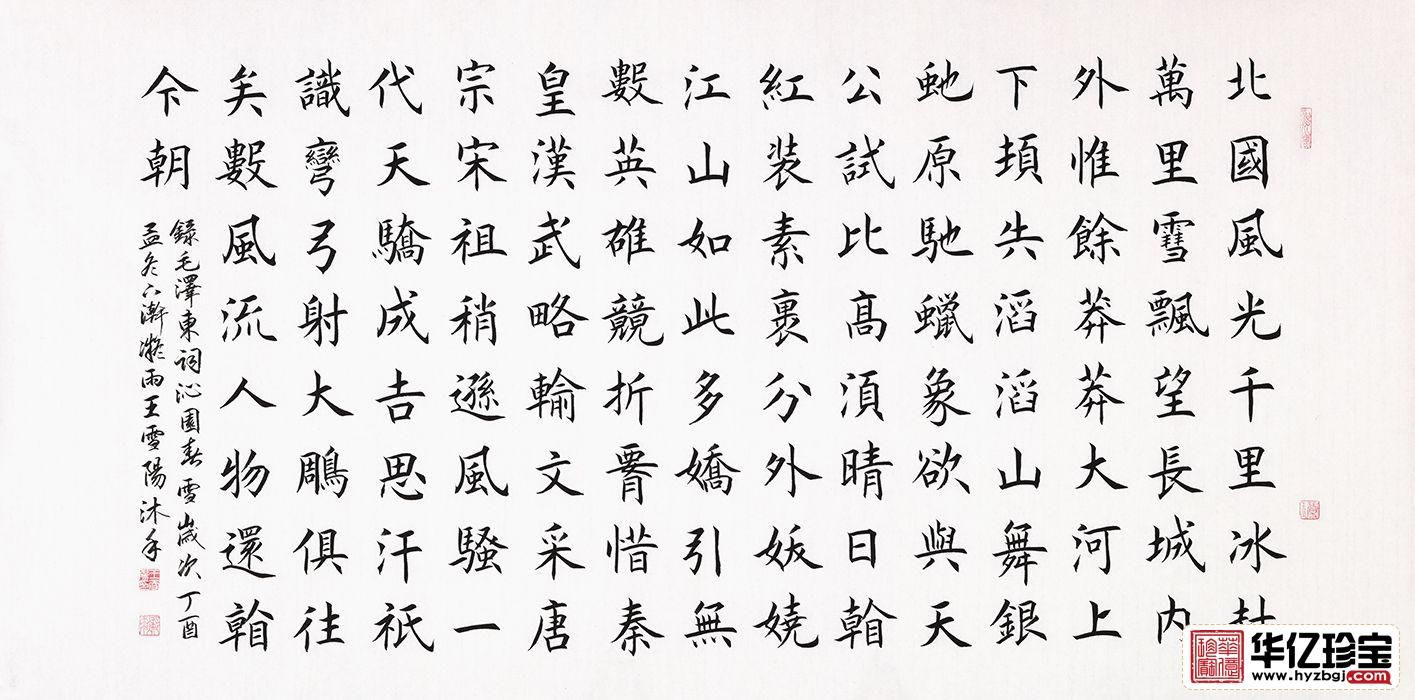 北國風光千里冰封
萬里雪飄望長城內
外惟餘莽莽大河上
下頓失滔滔山舞銀
虵原馳蠟象欲與天
公試比高須晴日看
紅装素裹分外妖嬈
江山如此多嬌引無
數英雄競折腰惜秦
皇漢武略輸文采唐
宗宋祖稍遜風騷一
代天驕成吉思汗衹
識彎弓射大鵰俱往
矣數風流人物還看
今朝
錄毛澤東詞沁園春雪歲次丁酉
孟冬凝雨王雪陽沐手
华亿珍宝
www.hyzbgj.com